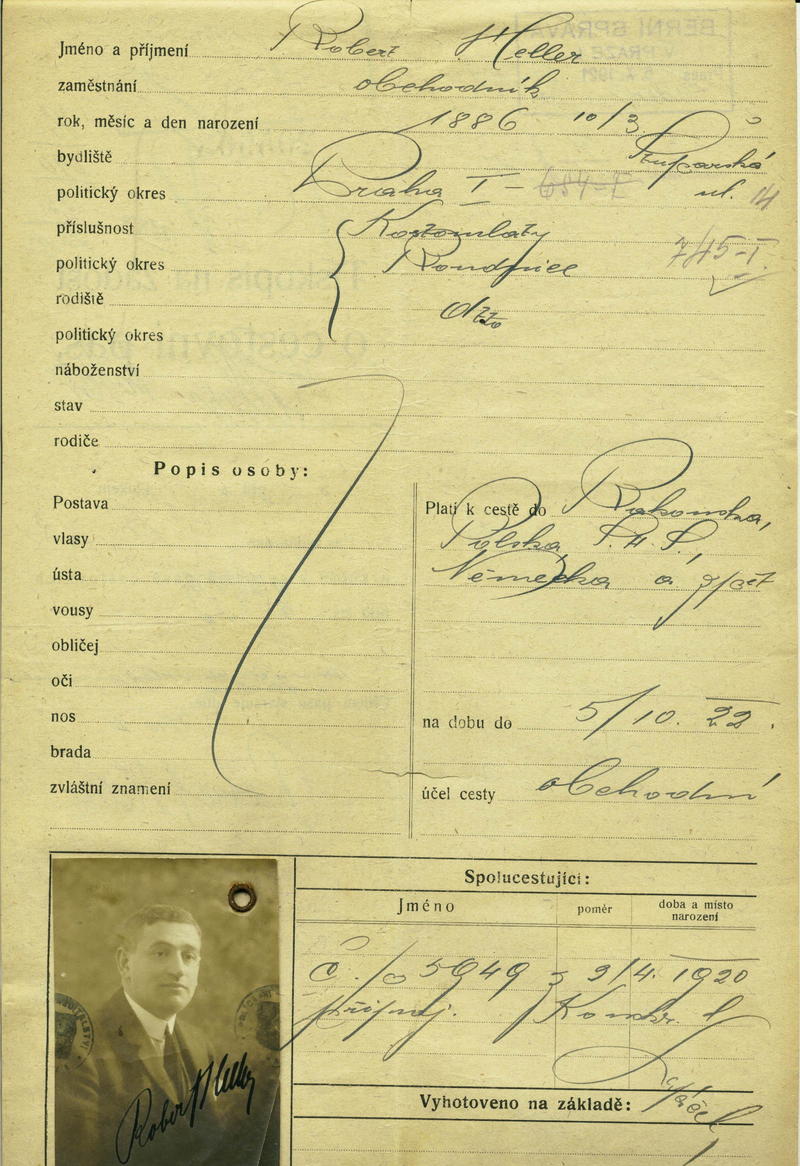 Jméno a příjmení Robert Heller
zaměstnání obchodník
rok, měsíc a den narození 1886 10/3
bydliště Ruparská
politický okres Praha I – 684-I ul. 14
příslušnost Kostomlaty
politický okres Roudnice 745-I.
rodiště dtto
politický okres
náboženství
stav
rodiče
Popis osoby:
Postava
vlasy
ústa
vousy
obličej
oči
nos
brada
zvláštní znamení
Platí k cestě do Rakouska,
Polska, S.H.S.,
Německa a zpět
na dobu do 5/10. 22.
účel cesty obchodní
Spolucestující:
Jméno poměr doba a místo narození
Č. 5949 z 9/4. 1920
Vyhotoveno na základě:
Robert Heller